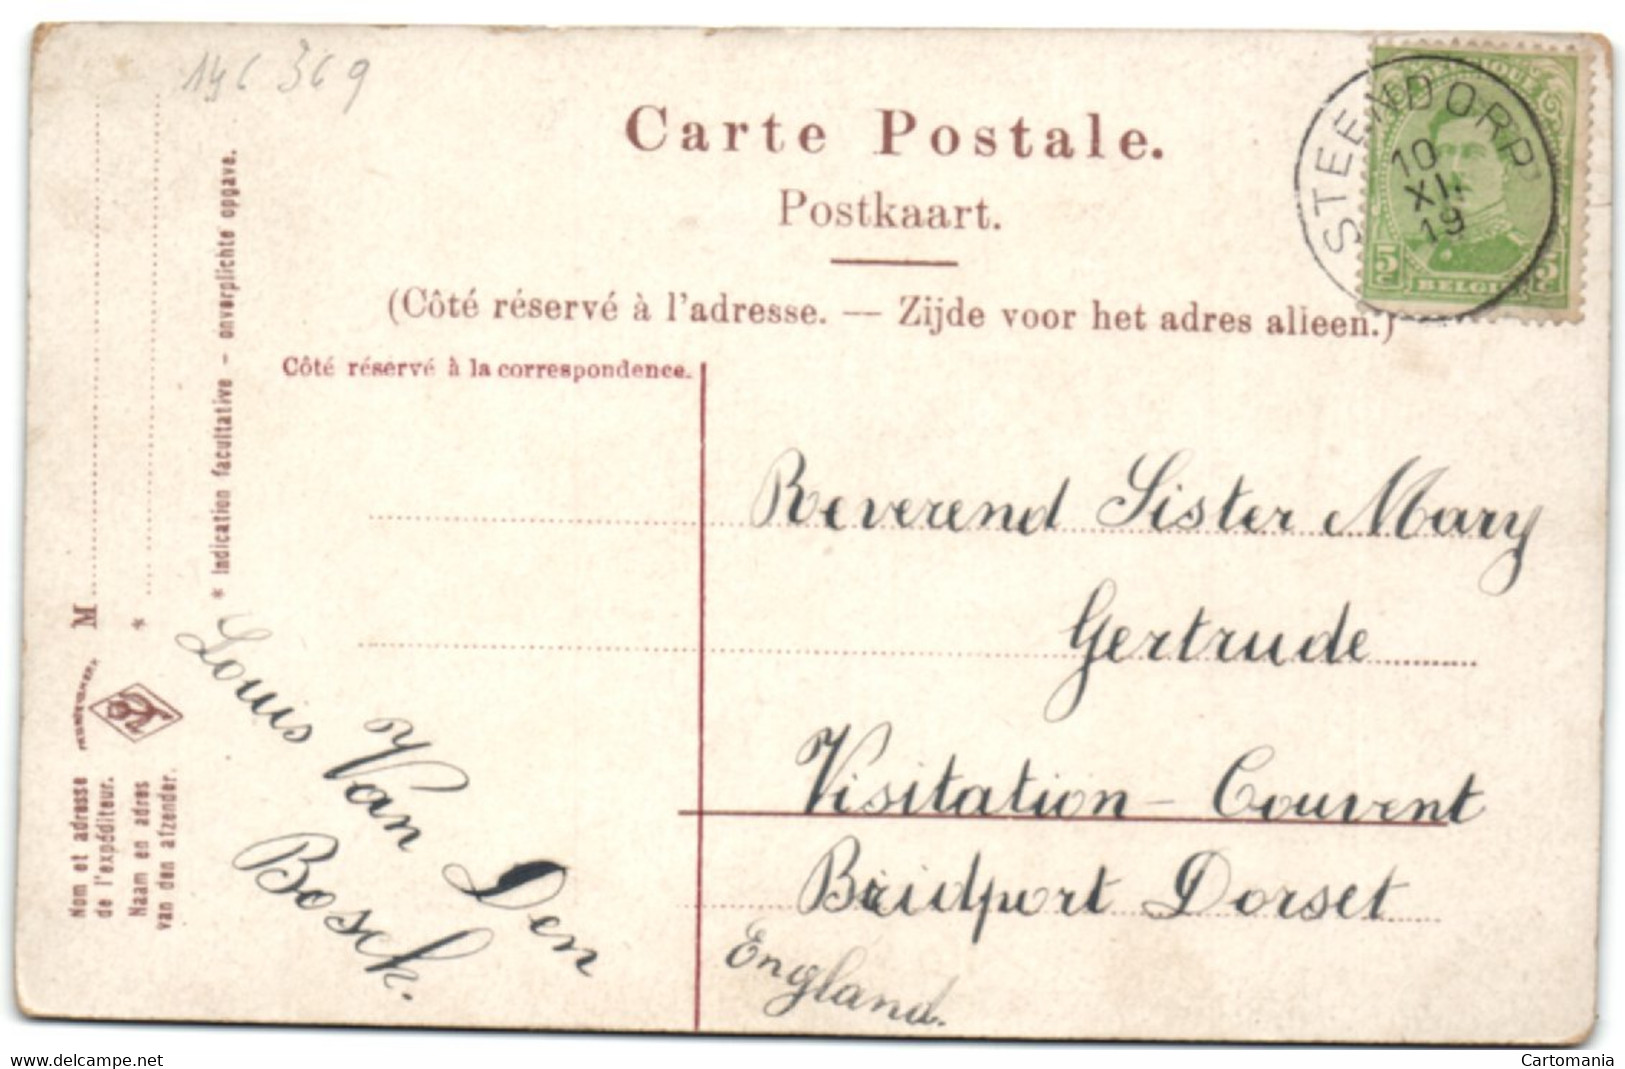 146 369
Carte Postale.
Postkaart.
(Côté réservé à l'adresse. — Zijde voor het adres alleen.)
Côté réservé à la correspondence.
STEENDORP
10
XI.
19
BELGIQUE
5 5
BELGIË
Reverend Sister Mary
Gertrude
Visitation - Couvent
Bridport Dorset
England.
Louis Van Den
Bosck.
* Indication facultative - onverplichte opgave.
M
*
Nom et adresse
de l'expéditeur.
Naam en adres
van den afzender.
www.delcampe.net
Cartomania